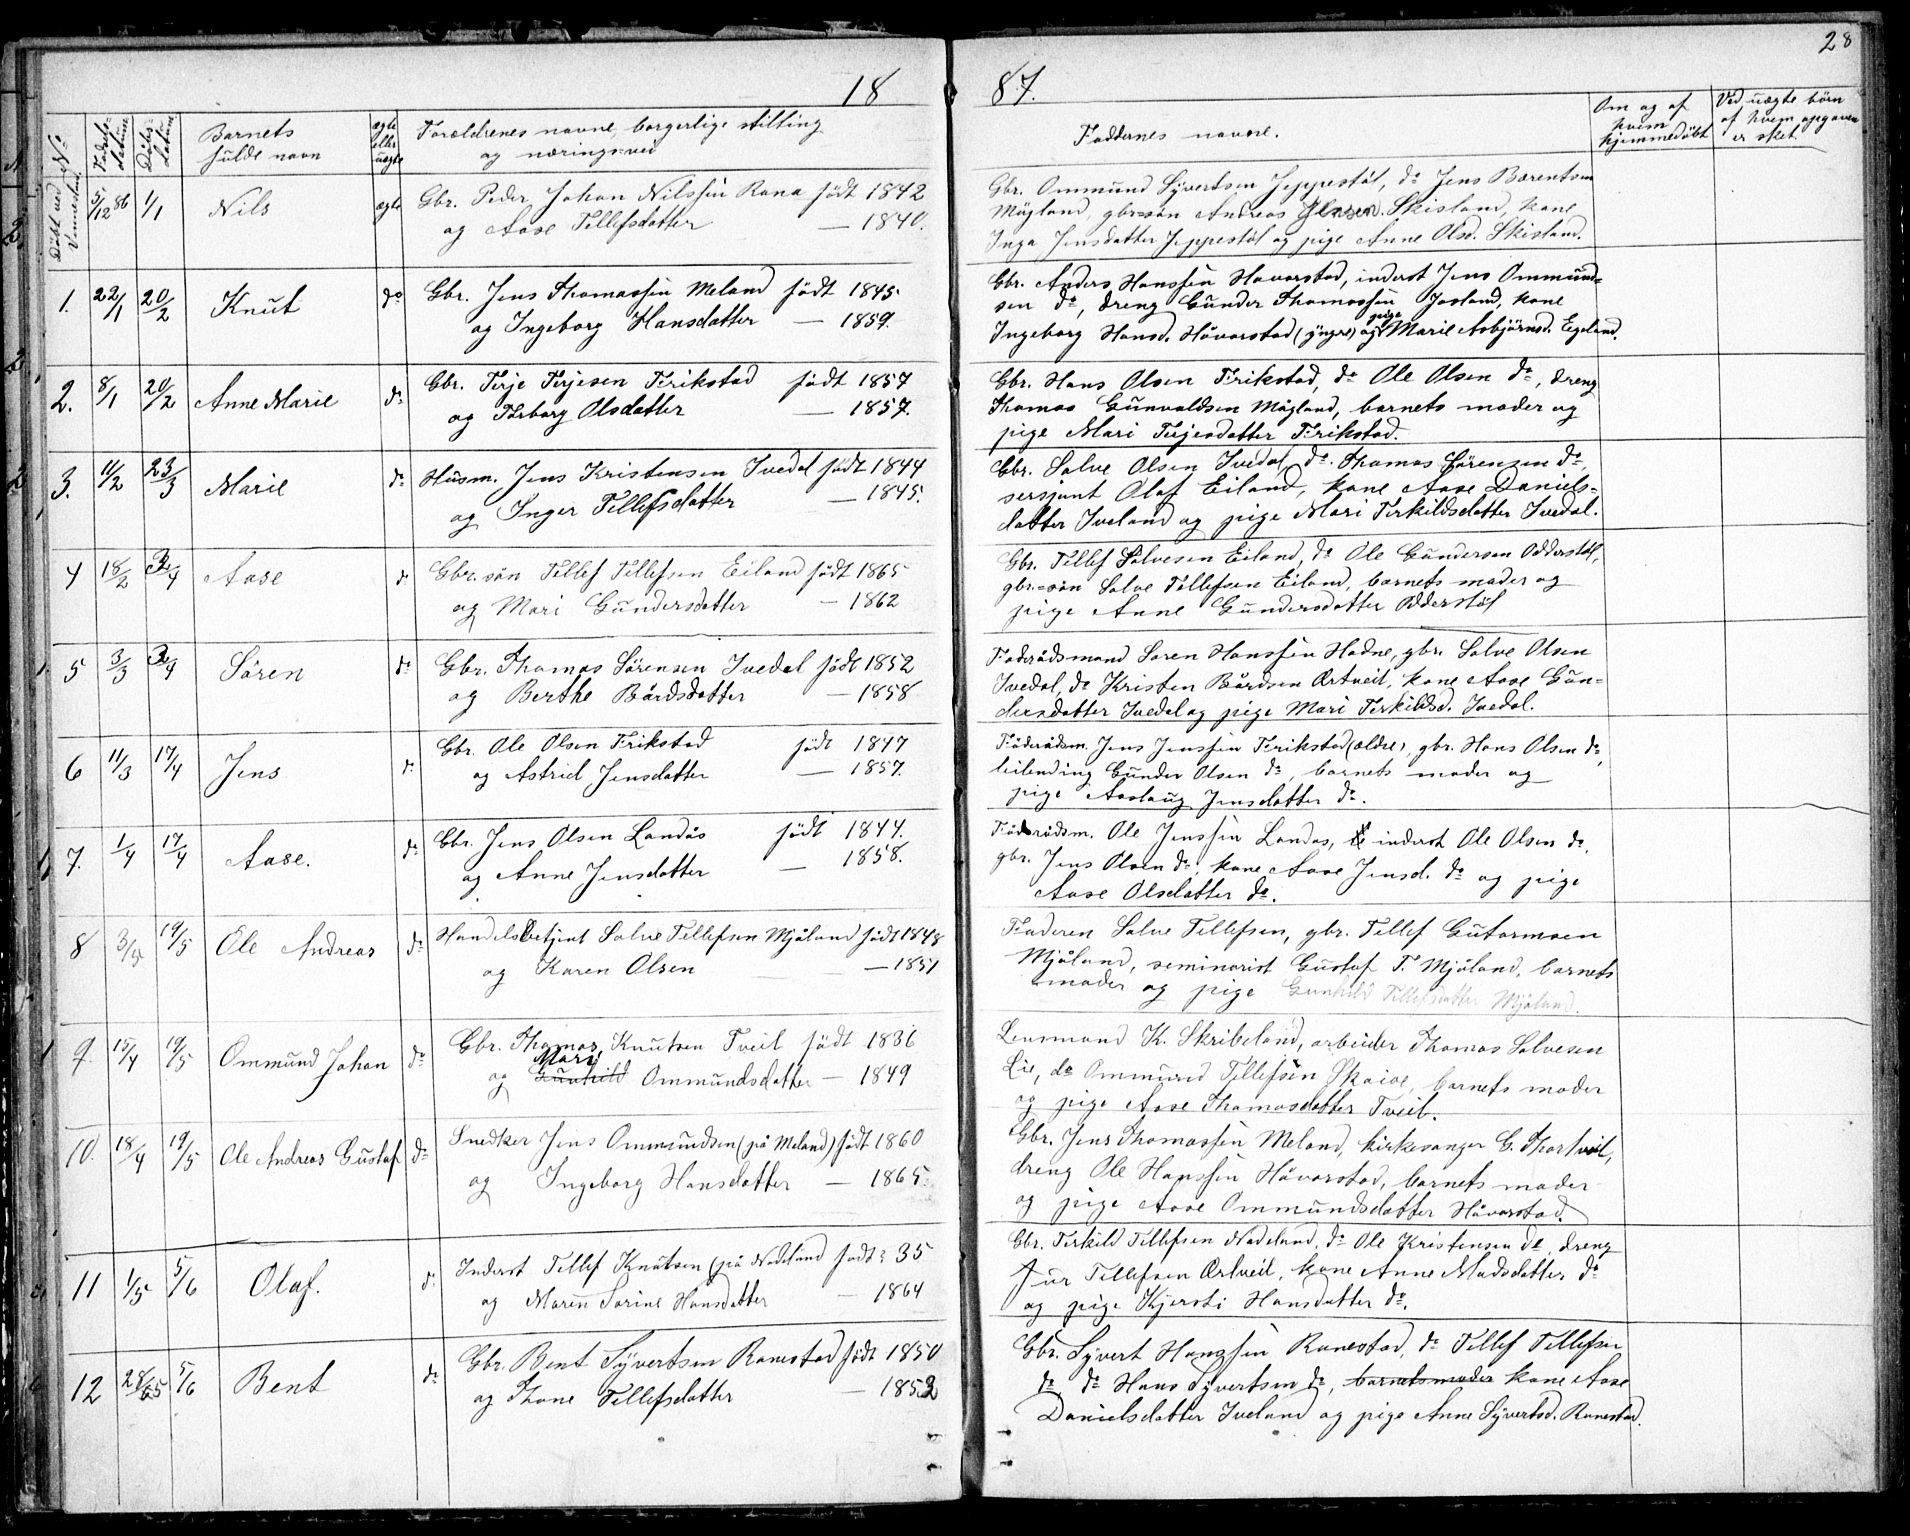 28
18 87.
Döbt ved Vennestad. No.
Födsels-datum
Döbs-datum
Barnets fulde navn
ægte eller uægte
Forældrenes navne, borgerlige stilling og næringsvei
Faddernes navne.
Om og af hvem hjemmedöbt
Ved uægte börn af hvem opgaven er sket.
5/12 86 1/1 Nils ægte Gbr. Peder Johan Nilssen Rana födt 1842
og Aase Tellefsdatter — 1840.
Gbr. Ommund Syvertsen Jeppestöl, do Jens Bærentsen
Mögland, gbr=sön Andreas Jensen Skisland, kone
Inga Jensdatter Jeppestöl og pige Anne Olsd. Skisland.
1. 22/1 20/2 Knut do Gbr. Jens Thomassen Meland födt 1845
og Ingeborg Hansdatter — 1859.
Gbr. Anders Hanssen Håvorstad, inderst Jens Ommund=
sen do, dreng Gunder Thomassen Josland, kone
Ingeborg Hansd. Håvorstad (yngre) og pige Marie Asbjörnsd. Egeland.
2. 8/1 20/2 Anne Marie do Gbr. Terje Terjesen Frikstad födt 1857
og Torborg Olsdatter — 1857.
Gbr. Hans Olsen Frikstad, do Ole Olsen do, dreng
Thomas Gunvaldsen Mögland, barnets moder og
pige Mari Terjesdatter Frikstad.
3. 11/2 23/3 Marie do Husm. Jens Kristensen Ivedal födt 1844
og Inger Tellefsdatter — 1845.
Gbr. Salve Olsen Ivedal, do. Thomas Sörensen do,
sersjant Olaf Eiland, kone Aase Daniels=
datter Iveland og pige Mari Terkildsdatter Ivedal.
4 18/2 /4 Aase do Gbr. sön Tellef Tellefsen Eiland födt 1865
og Mari Gundersdatter — 1862
Gbr. Tellef Salvesen Eiland, do Ole Gundersen Odderstöl,
gbr.=sön Salve Tellefsen Eiland, barnets moder og
pige Anne Gundersdatter Odderstöl
5 3/3 /4 Sören do Gbr. Thomas Sörensen Ivedal födt 1852
og Berthe Bårdsdatter — 1858
Föderådsmand Sören Hanssen Hodne, gbr. Salve Olsen
Ivedal, do Kristen Bårdsen Ørtveit, kone Aase Gun=
dersdatter Ivedal og pige Mari Terkildsd. Ivedal.
6 11/3 17/4 Jens do Gbr. Ole Olsen Frikstad födt 1847
og Astrid Jensdatter — 1857.
Föderådsm. Jens Jenssen Frikstad (ældre), gbr. Hans Olsen do,
leilending Gunder Olsen do, barnets moder og
pige Aaslaug Jensdatter do.
7. 1/4 17/4 Aase. do Gbr. Jens Olsen Landås födt 1844.
og Anne Jensdatter — 1858.
Föderådsm. Ole Jenssen Landås, inderst Ole Olsen do.
gbr. Jens Olsen do, kone Aase Jensd. do og pige
Aase Olsdatter do.
8 3/5 19/5 Ole Andreas do Handelsbetjent Salve Tellefsen Mjåland födt 1848
og Karen Olsen — 1851
Faderen Salve Tellefsen, gbr. Tellef Gutormsen
Mjåland, seminarist Gustaf T. Mjåland, barnets
moder og pige Gunhild Tellefsdatter Mjåland.
9. 15/4 19/5 Ommund Johan do Gbr. Thomas Knutsen Tveit födt 1836
Mari
og Gunhild Ommundsdatter — 1849
Lensmand K. Skribeland, arbeider Thomas Salvesen
Lie, do Ommund Tellefsen Skaiaa, barnets moder
og pige Aase Thomasdatter Tveit.
10. 18/4 19/5 Ole Andreas Gustaf do Snedker Jens Ommundsen (på Meland) födt 1860
og Ingeborg Hansdatter — 1865.
Gbr. Jens Thomassen Meland, kirkesanger G. Thortveit,
dreng Ole Hanssen Håvorstad, barnets moder
og pige Aase Ommundsdatter Håvorstad.
11 1/5 5/6 Olaf. do Inderst Tellef Knutsen (på Nodeland födt: 35
og Maren Sorine Hansdatter — 1864
Gbr. Terkild Tellefsen Nodeland, do Ole Kristensen do, dreng
Jur Tellefsen Ørtveit, kone Anne Madsdatter do
og pige Kjersti Hansdatter do.
12 5/6 Bent do Gbr. Bent Syvertsen Ranestad födt 1850
og Thone Tellefsdatter — 1852
Gbr. Syvert Hanssen Ranestad, do Tellef Tellefsen
do, do Hans Syvertsen do, barnets moder kone Aase
Danielsdatter Iveland og pige Anne Syvertsd. Ranestad.